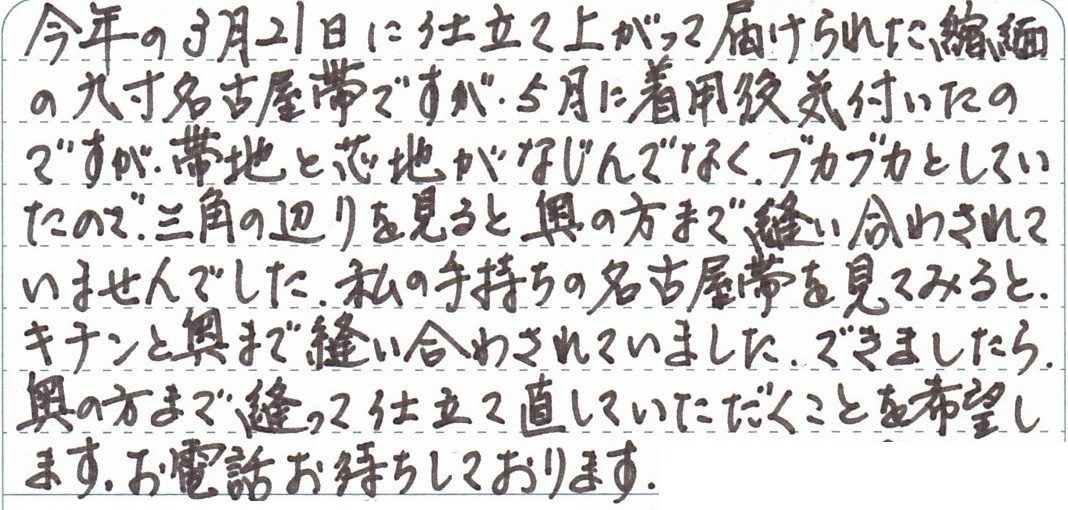 今年の3月21日に仕立て上がって届けられた縮緬
の九寸名古屋帯ですが、5月に着用後気付いたの
ですが、帯地と芯地がなじんでなく、ブカブカとしてい
たので、三角の辺りを見ると奥の方まで縫い合わされて
いませんでした。私の手持ちの名古屋帯を見てみると、
キチンと奥まで縫い合わされていました。できましたら、
奥の方まで縫って仕立て直していただくことを希望し
ます。お電話お待ちしております。